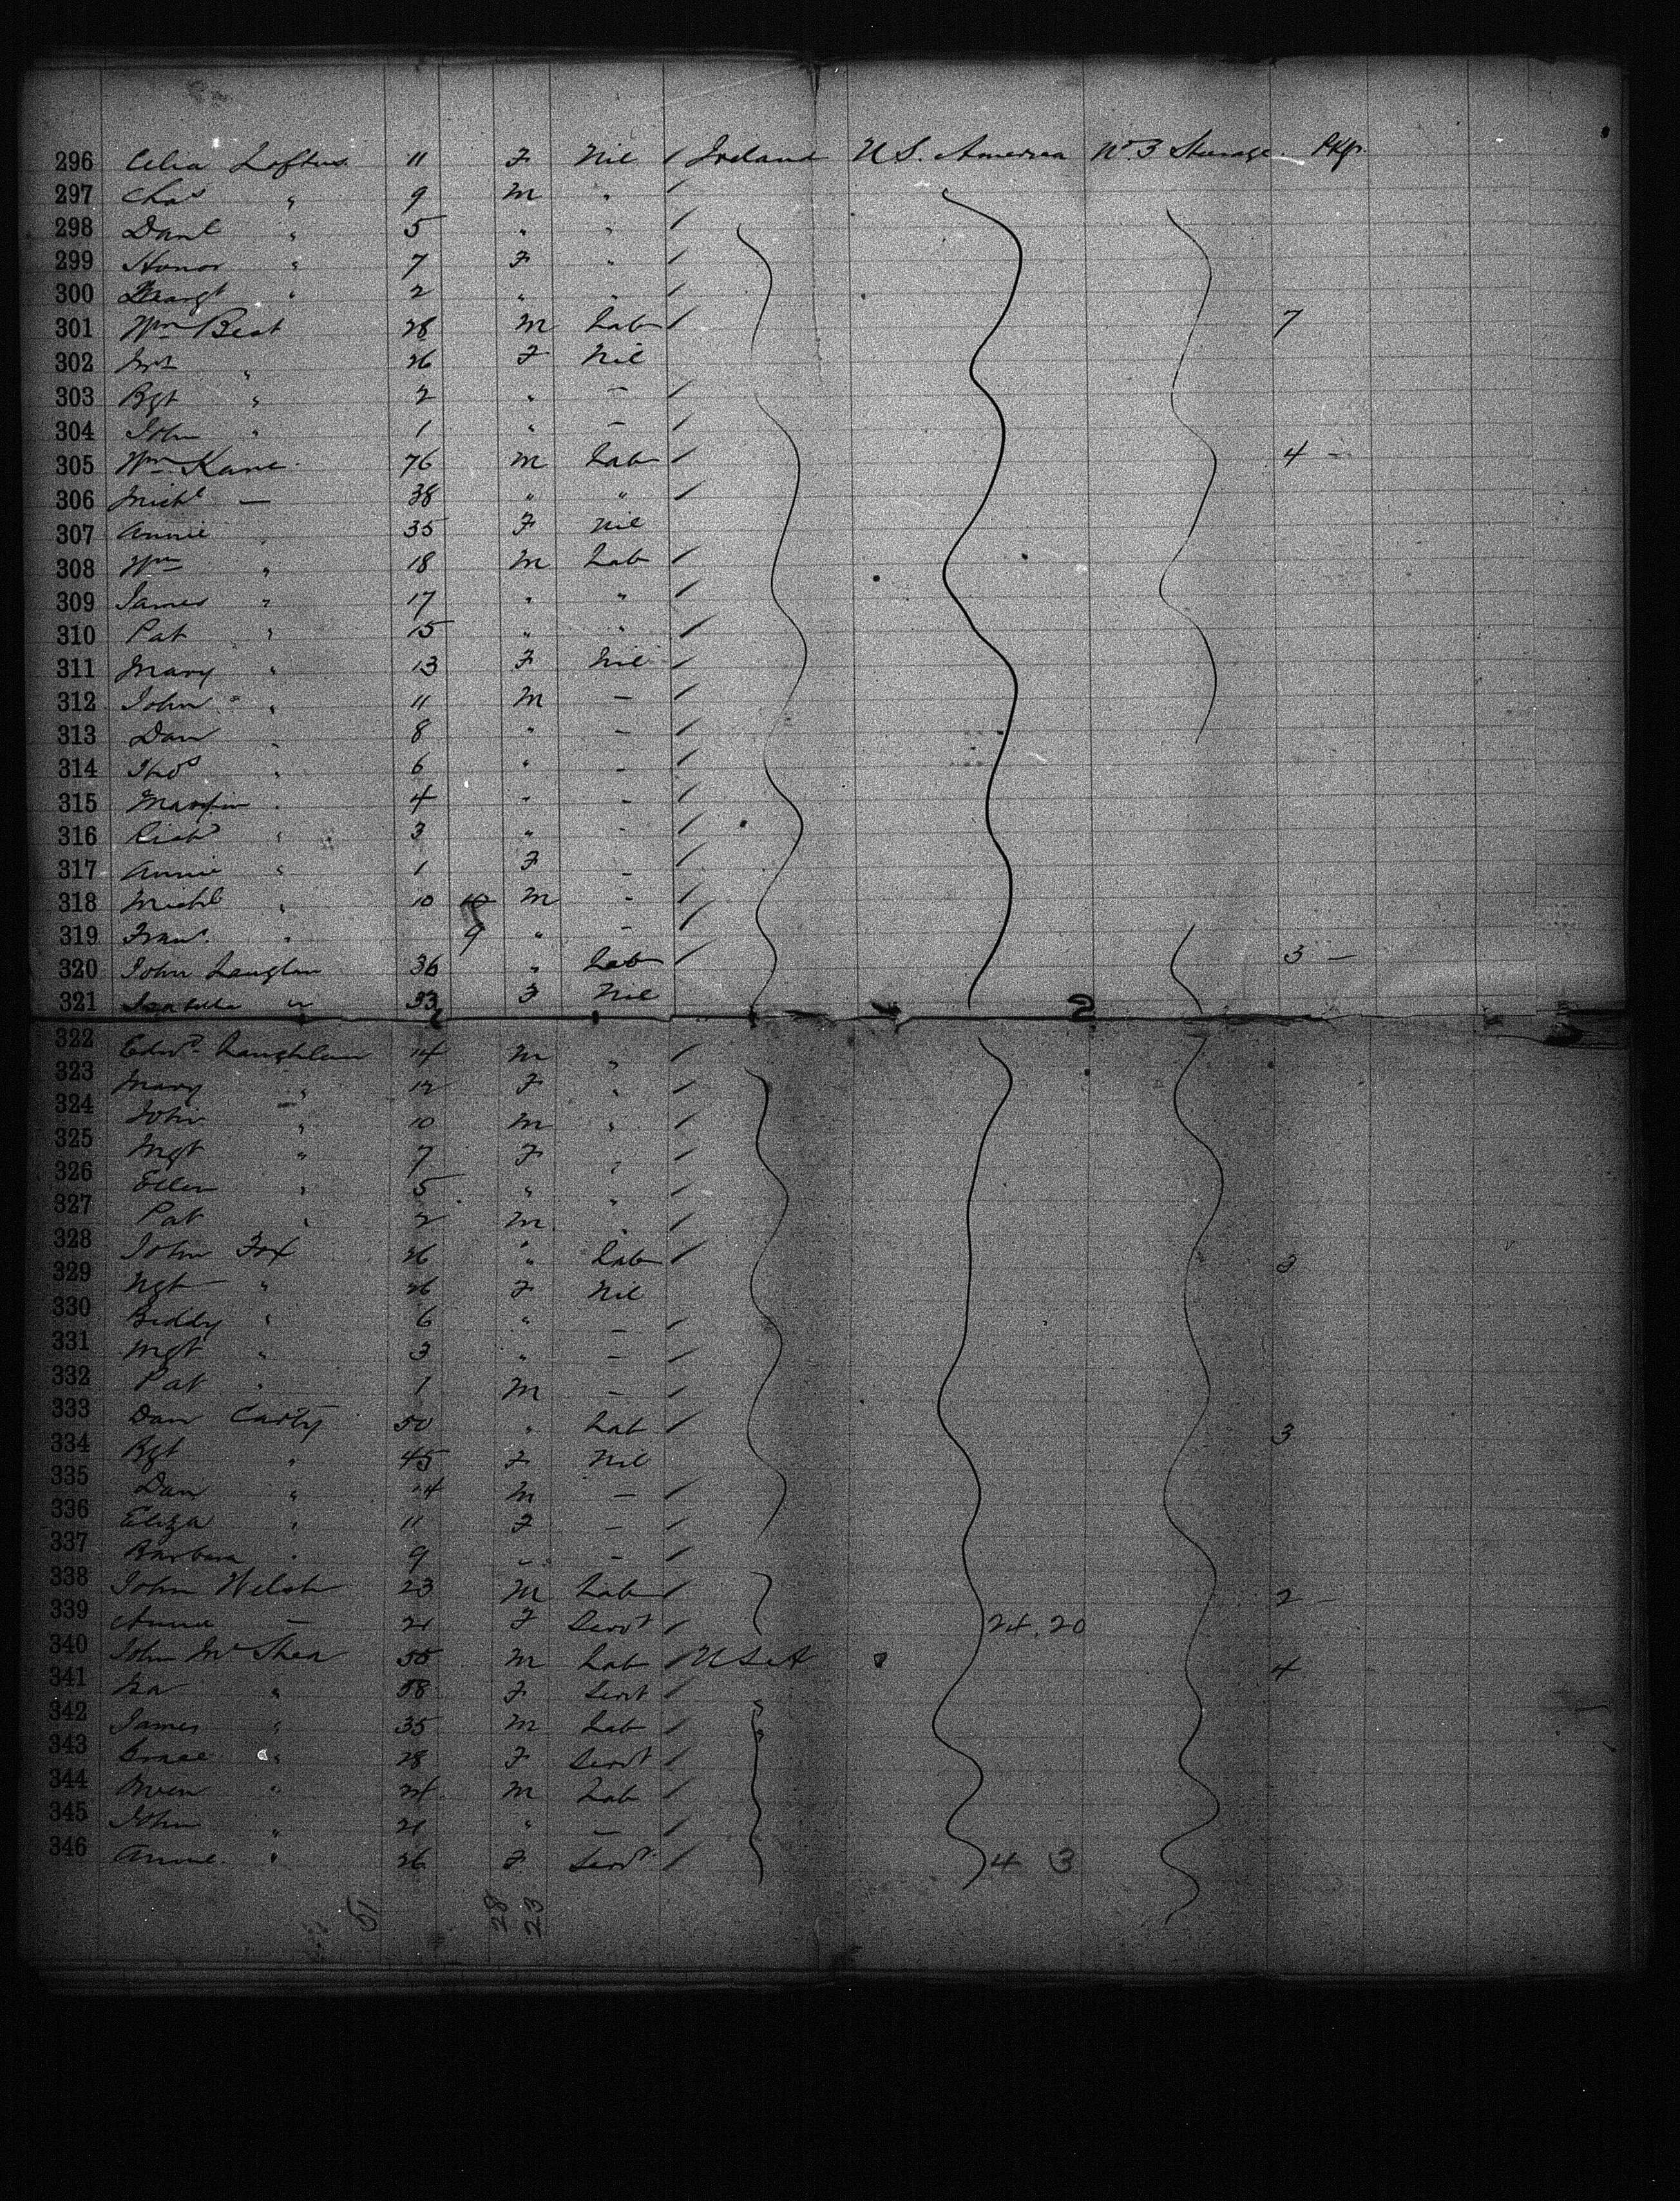 296 Celia Loftus 11 F Nil / Ireland U.S. America No. 3 Steerage Pkgs.
297 Chas " 9 M " /
298 Danl " 5 " " /
299 Honor " 7 F " /
300 Margt " 2 " " /
301 Wm Beat 28 M Lab / 7
302 Mrs " 26 F Nil
303 Bgt " 2 " — /
304 John " 1 " — /
305 Wm Kane 76 M Lab / 4 —
306 Michl — 38 " " /
307 Annie " 35 F Nil
308 Wm " 18 M Lab /
309 James " 17 " " /
310 Pat " 15 " " /
311 Mary " 13 F Nil /
312 John " 11 M — /
313 Dan " 8 " — /
314 Thos " 6 " — /
315 Martin " 4 " — /
316 Richd " 3 " — /
317 Annie " 1 F — /
318 Michl " 10 10 M — /
319 Fran. " 9 " — /
320 John Langlin 36 " Lab / 3 —
321 Isabella " 33 F Nil
322 Edwd Laughlin 14 M " /
323 Mary " 12 F " /
324 John " 10 M " /
325 Mgt " 7 F " /
326 Ellen " 5 " " /
327 Pat " 2 M " /
328 John Fox 26 " Lab / 3
329 Mgt " 26 F Nil
330 Biddy " 6 " — /
331 Mgt " 3 " — /
332 Pat " 1 M — /
333 Dan Carty 50 " Lab / 3
334 Bgt " 45 F Nil
335 Dan " 14 M — /
336 Eliza " 11 F — /
337 Barbara " 9 " — /
338 John Welsh 23 M Lab / 2 —
339 Anna — 21 F Servt / 24.20
340 John McShea 55 M Lab / U S A 4
341 " 58 F Servt /
342 James " 35 M Lab /
343 Grace " 28 F Servt /
344 Owen " 24 M Lab /
345 John " 21 " — /
346 Annie " 26 F Servt / 4 3
51 28
23